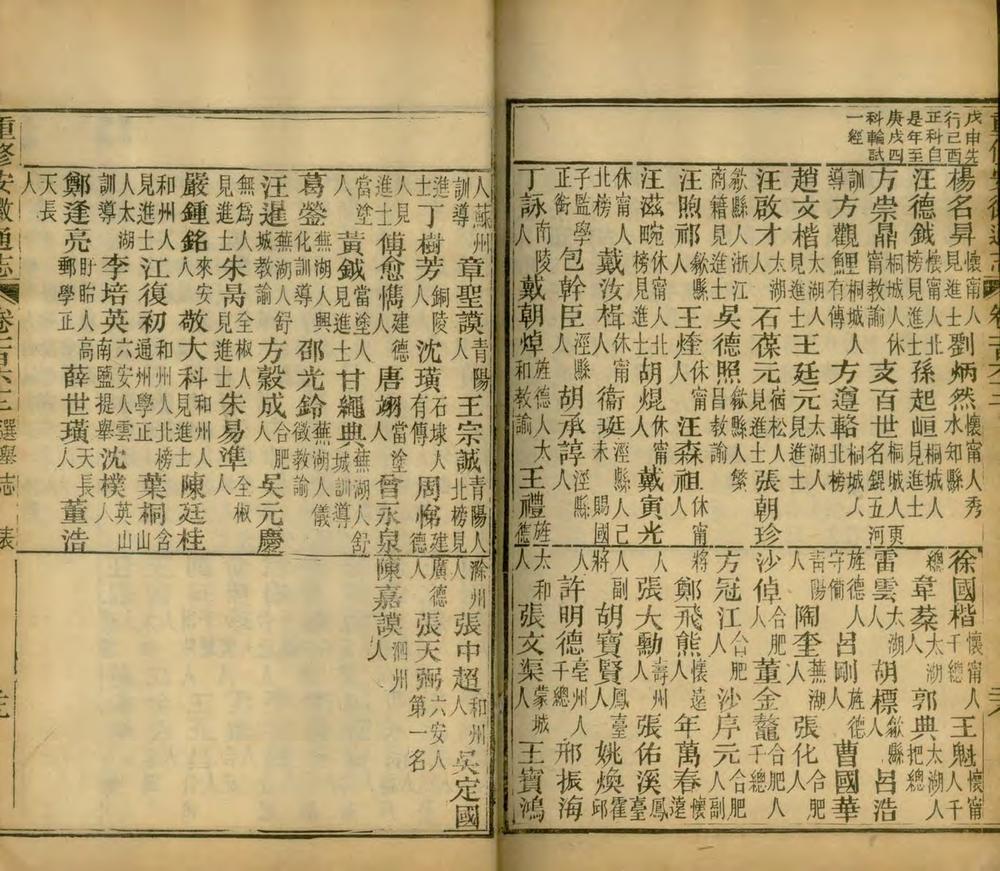 戊申先
行己酉
正科自
是年至
庚戌四
科輪試
一經
楊名昇懷甯人見進士劉炳然懷甯人秀水知縣
汪德鉞懷甯人北榜見進士孫起峘桐城人見進士
方崇鼎桐城人休甯教諭支百世桐城人更名錕五河
訓導方觀鯉桐城人有傳方遵輅桐城人北榜
趙文楷太湖人見進士王廷元太湖人見進士
汪啟才太湖人石葆元宿松人見進士張朝珍
歙縣人浙江商籍見進士吳德照歙縣人繁昌教諭
汪煦祁歙縣人王煃休甯人汪森祖休甯人
汪滋畹休甯人北榜見進士胡焜休甯人戴寅光
休甯人北榜戴汝楫休甯人衞珽涇縣人己未賜國
子監學正銜包幹臣涇縣人胡承諄涇縣人
丁詠南陵人戴朝焯旌德人太和教諭王禮旌德
徐國楷懷甯人千總王魁懷甯人千
總韋蔡太湖人郭典太湖人把總
雷雲太湖人胡標歙縣人呂浩
旌德人守備呂剛旌德人曹國華
青陽人陶奎蕪湖人張化合肥人
沙倬合肥人董金鼇合肥人千總
方冠江合肥人沙序元合肥人副
將鄭飛熊懷遠人年萬春懷遠
人張大勳壽州人張佑溪鳳臺
人副將胡寶賢鳳臺人姚煥霍邱
人許明德亳州人千總邢振海
太和人張文渠蒙城人王寶鴻
人蘇州訓導章聖謨青陽人王宗誠青陽人北榜見
進士丁樹芳銅陵人沈璜石埭人有傳周悌建德
人見進士傅愈懏建德人唐翊當塗人曾永泉
當塗人黃鉞當塗人見進士甘繩典蕪湖人舒城訓導
葛鎣蕪湖人興化訓導邵光鈐蕪湖人儀徵教諭
汪暹蕪湖人舒城教諭方穀成合肥人吳元慶
無爲人見進士朱昺全椒人見進士朱易準全椒人
嚴鍾銘來安人敬大科和州人見進士陳廷桂
和州人見進士江復初和州人北榜通州學正葉桐含山
人太湖訓導李培英六安人雲南鹽提舉沈樸英山人
鄭逢亮盱眙人高郵學正薛世璜天長人董浩
天長人
滁州人張中超和州人吳定國
廣德人張天弼六安人第一名
陳嘉謨泗州人
重修安徽通志 卷一百六十三 選舉志 表